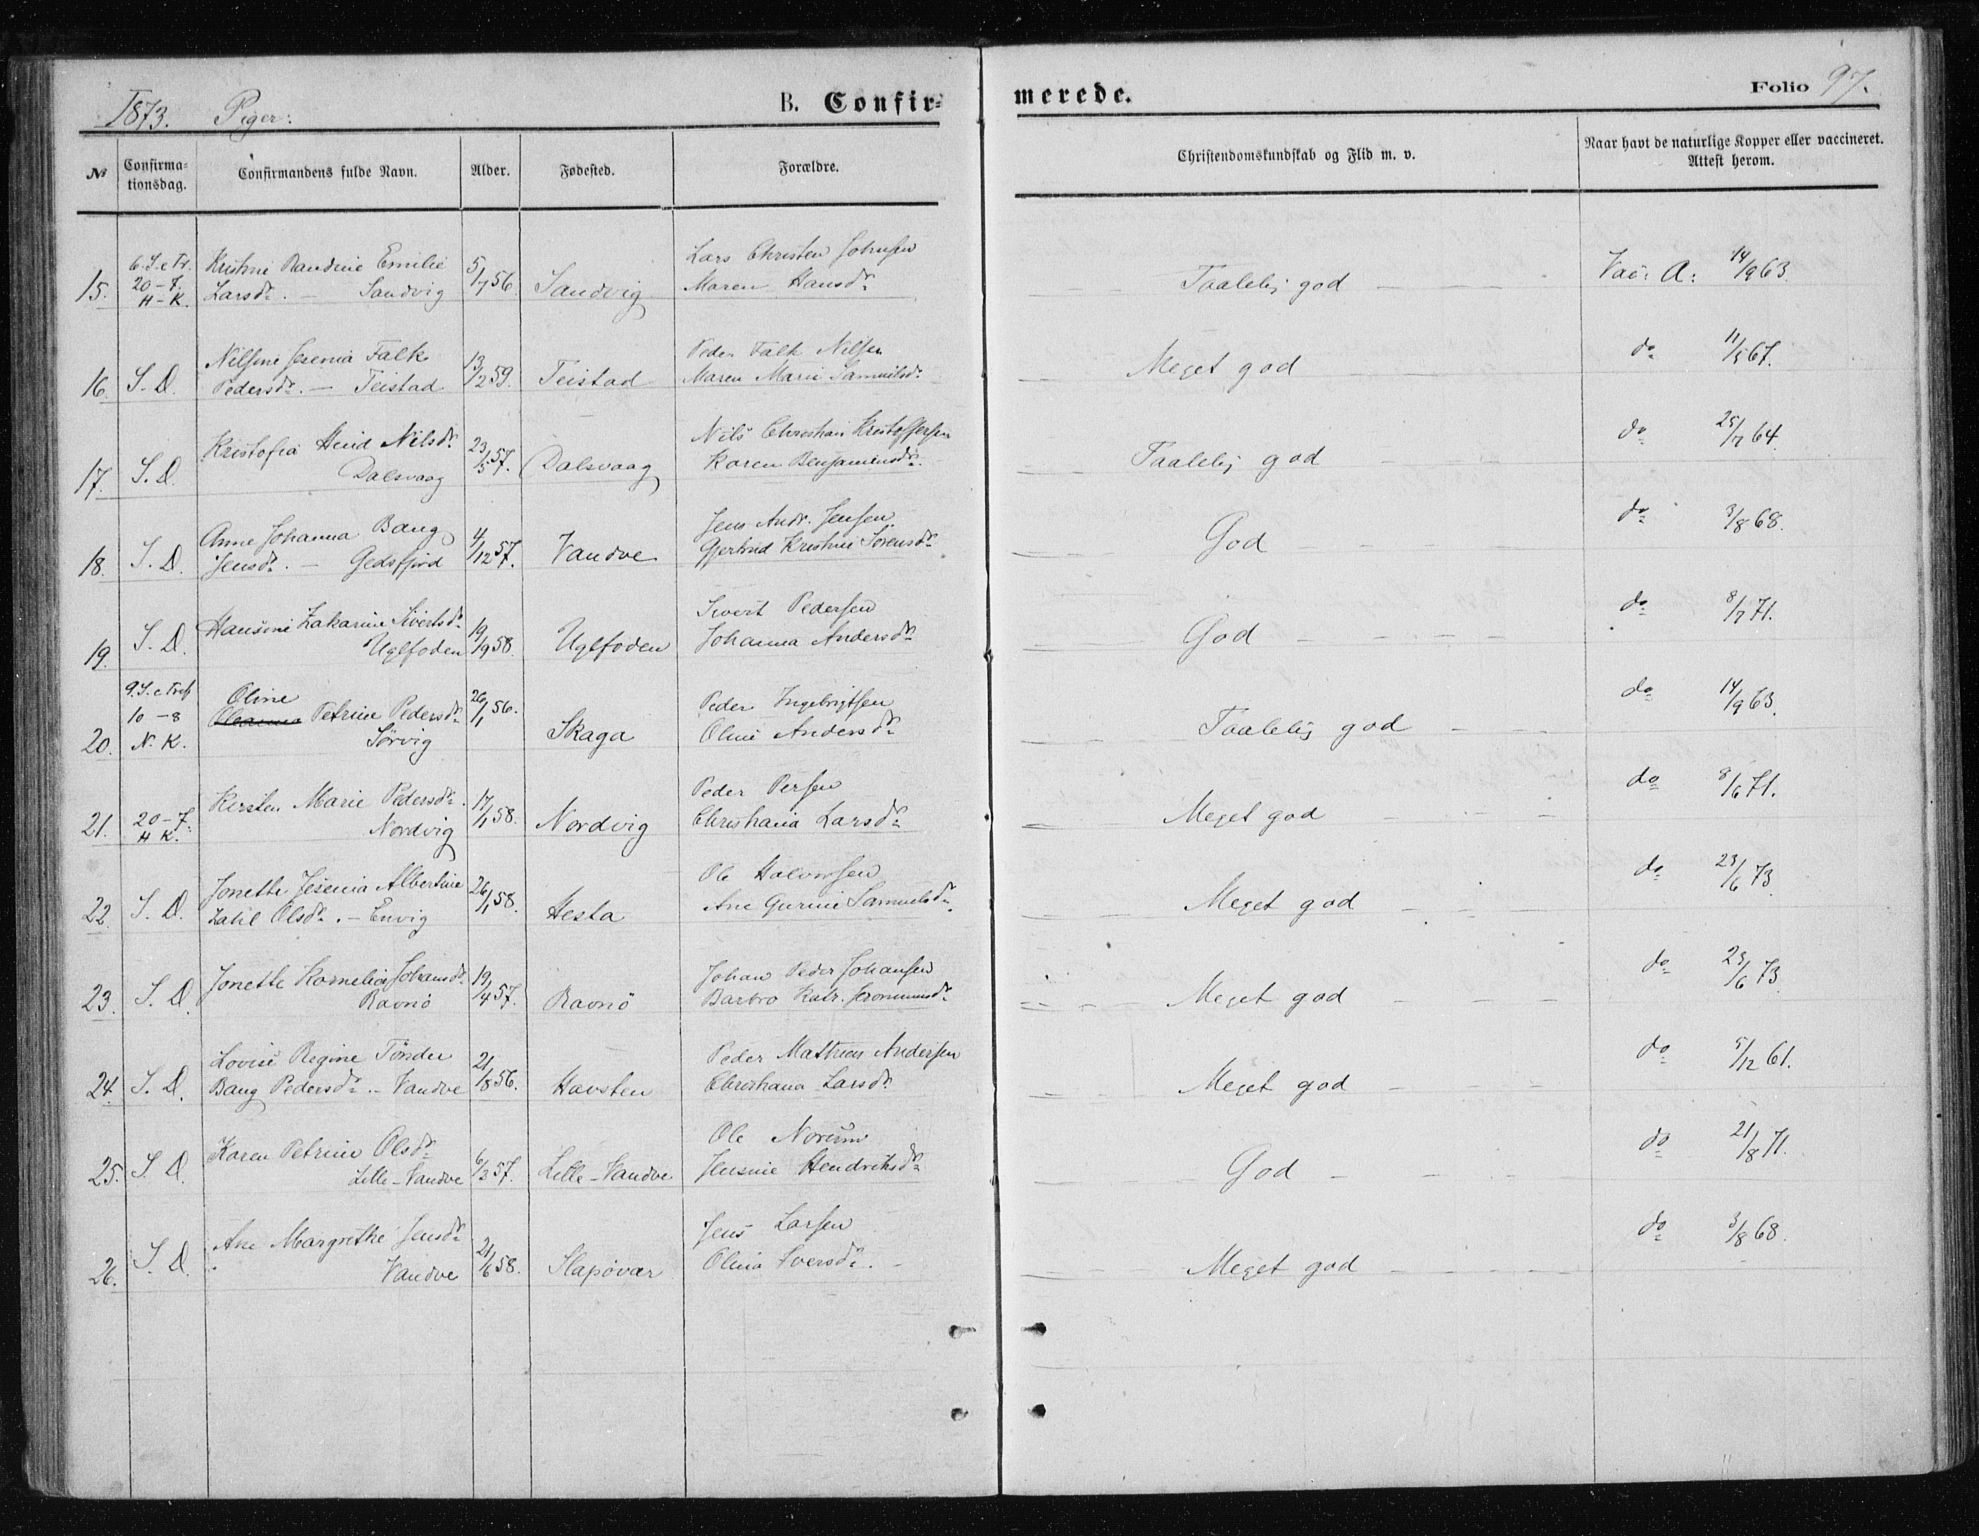 1873. Piger:
B. Confir-
merede.
Folio 97.
№
Confirma-
tionsdag.
Confirmandens fulde Navn.
Alder.
Fødested.
Forældre.
Christendomskundskab og Flid m. v.
Naar havt de naturlige Kopper eller vaccineret.
Attest herom.
15. 6. S. e Tr. 20-7. H-K. Kristine Randine Emilie 5/7 56. Sandvig Lars Christen Johnsen Taalelig god Vac: A: 14/9 63.
Larsdr. - Sandvig Maren Hansdr
16. S. D. Nilsine Jesenia Falk 13/2 59. Teistad Peder Falk Nilsen Meget god do 11/5 67.
Pedersdr. - Teistad Maren Marie Samuelsdr
17. S. D. Kristofia Nilsdr 23/5 57. Dalsvaag Nils Christian Kristoffersen Taalelig god do 25/7 64.
Dalsvaag Karen Benjaminsdr.
18. S. D. Anne Johanna Bang 4/12 57. Vandve Jens Andr. Jensen God do 3/8 68.
Jensdr. - Gedsfjord Gjertrud Kristine Sørensdr
19. S. D. Hansine Zakarine Sivertsdr 19/9 58. Uglfoden Sivert Pedersen God do 8/7 71.
Uglfoden Johanna Andersdr
20. 9. S. e Tref 10-8 N. K. Oline Petrine Pedersdr 26/1 56. Skaga Peder Ingebrigtsen Taalelig god do 14/9 63.
Sørvig Oline Andersdr
21. 20-7. H K. Kirsten Marie Pedersdr. 17/1 58. Nordvig Peder Persen Meget god do 8/6 71.
Nordvig Christiania Larsdr
22. S. D. Jonette Jesenia Albertine 26/1 58. Hesta Ole Halvorsen Meget god do 23/6 73.
Zahl Olsdr. - Envig Ane Gurine Samuelsdr.
23. S. D. Jonette Kornelia Johansdr 19/4 57. Ravnø Johan Peder Johansen Meget god do 23/6 73.
Ravnø Barbro Katr. Jeronimusdr
24. S. D. Lovise Regine Tønder 21/8 56. Havsten Peder Mathias Andersen Meget god do 5/12 61.
Bang Pedersdr. - Vandve Christiana Larsdr
25. S. D. Karen Petrine Olsdr 6/3 57. Lille-Vandve Ole Norum God do 21/8 71.
Lille-Vandve Jensine Hendriksdr
26. S. D. Ane Margrethe Jensdr 21/6 58. Slapøvær Jens Larsen Meget god do 3/8 68.
Vandve Olina Iversdr.